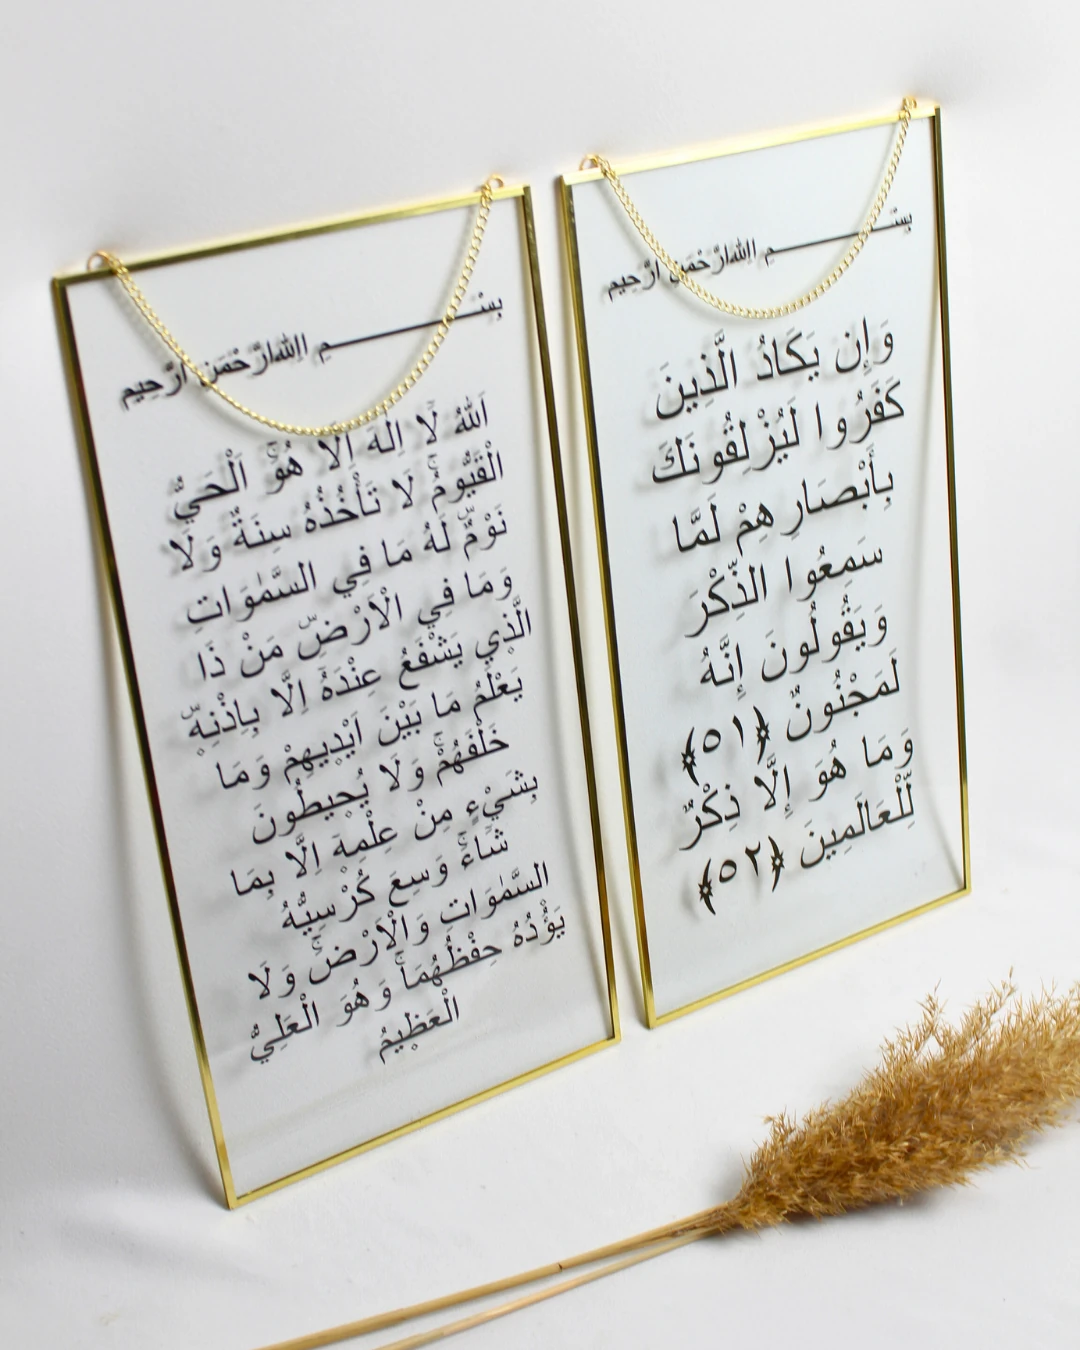 بِسْــــــــــمِ اللهِ ارَّحْمَنِ ارَّحِيمِ
اَللّٰهُ لَا اِلٰهَ اِلَّا هُوَۚ اَلْحَيُّ
الْقَيُّومُۚ لَا تَأْخُذُهُ سِنَةٌ وَلَا
نَوْمٌۜ لَهُ مَا فِي السَّمٰوَاتِ
وَمَا فِي الْاَرْضِۜ مَنْ ذَا
الَّذِي يَشْفَعُ عِنْدَهُٓ اِلَّا بِاِذْنِهِۜ
يَعْلَمُ مَا بَيْنَ اَيْدِيهِمْ وَمَا
خَلْفَهُمْۚ وَلَا يُحِيطُونَ
بِشَيْءٍ مِنْ عِلْمِهِٓ اِلَّا بِمَا
شَاءَۚ وَسِعَ كُرْسِيُّهُ
السَّمٰوَاتِ وَالْاَرْضَۚ وَلَا
يَؤُ۫دُهُ حِفْظُهُمَاۚ وَهُوَ الْعَلِيُّ
الْعَظِيمُ
بِسْــــــــــمِ اللهِ ارَّحْمَنِ ارَّحِيمِ
وَإِن يَكَادُ الَّذِينَ
كَفَرُوا لَيُزْلِقُونَكَ
بِأَبْصَارِهِمْ لَمَّا
سَمِعُوا الذِّكْرَ
وَيَقُولُونَ إِنَّهُ
لَمَجْنُونٌ ﴿٥١﴾
وَمَا هُوَ إِلَّا ذِكْرٌ
لِّلْعَالَمِينَ ﴿٥٢﴾